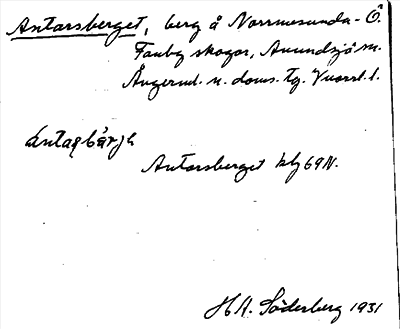 Antarsberget, berg å Norrmesunda - Ö.
Fanby skogar, Anundsjö sn.
Ångerml. n. doms. tg. Vnorrl. l.
ántaṛbǽrjə
Antarsberget kbg 69 N.
H A. Söderberg 1931